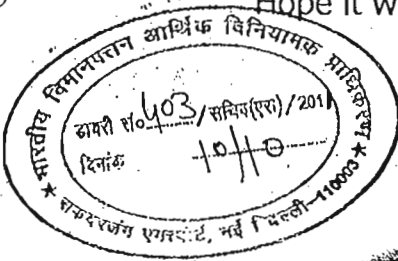 Hope it w
भारतीय विमानपत्तन आर्थिक विनियामक प्राधिकरण
डायरी सं० 403 /सचिव(एरा)/201
दिनांक 10/10
सफदरजंग एयरपोर्ट, नई दिल्ली-110003